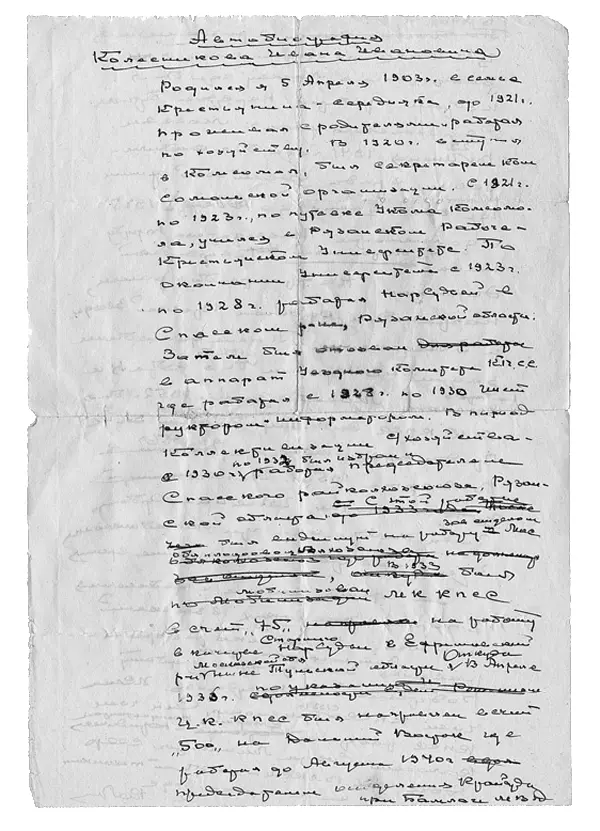 Автобиография
Колесникова Ивана Ивановича
Родился я 5 Апреля 1903г. в семье
Крестьянина-середняка, до 1921г.
проживал с родителями-работал
по хозяйству. В 1920г. вступил
в Комсомол, был секретарем Ком
сомольской организации. С 1921г.
по 1923г., по путевке Укома Комсомо-
ла, учился в Рязанском Рабоче-
Крестьянском Университете. По
окончании Университета с 1923г.
по 1928г. работал Нарсудьей в
Спасском р-не, Рязанской области.
Затем был отозван
в аппарат Уездного Комитета КПСС
где работал с 1928г. по 1930 инст
руктором-информатором. В период
Коллективизации с/хозяйства-
с 1930г. по 1932 был избран и работал председателем
Спасского райколхозсоюза, Рязан-
ской области, с этой работы
был выдвинут на работу зав отделом в Мос
был
В 1933
мобилизован МК КПСС
в счет "75" на работу
в качестве Старшего Нарсудьи в Ефремовский
район Московской обл Тульской области. Откуда в Апреле
1936г.
Ц.К. КПСС был направлен в счет
"500" на Дальний Восток где
работал до Августа 1940г
председателем отделения Крайсуда
при Бамлаге МВД